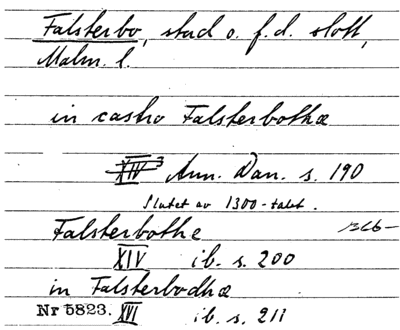 Falsterbo, stad o. f.d. slott,
Malm. l.
in castro Falsterbothæ
XIV 3 Ann. Dan. s. 190
Slutet av 1300-talet.
Falsterbothe
XIV ib. s. 200
in Falsterbodhæ
Nr 5823. XVI ib. s. 211